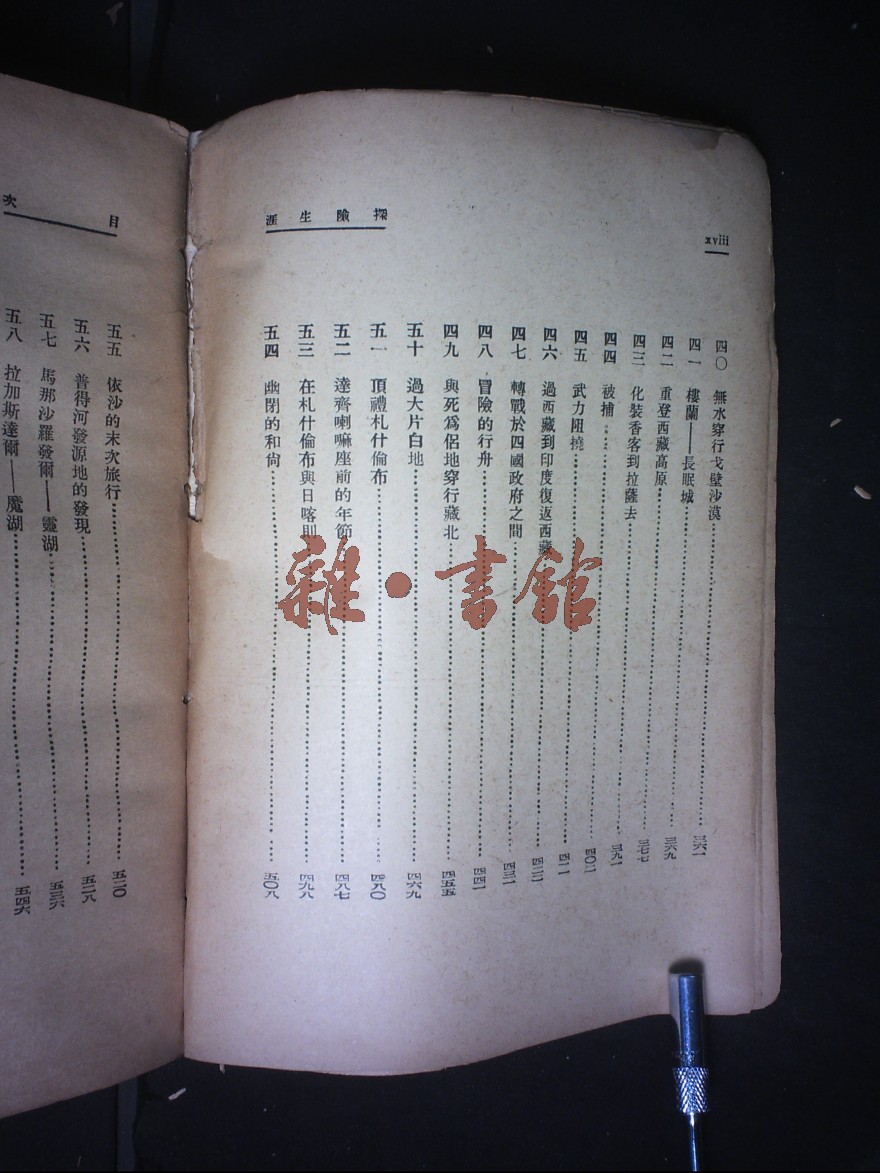 xviii
探險生涯
四〇 無水穿行戈壁沙漠……三六一
四一 樓蘭——長眠城……三六九
四二 重登西藏高原……三七七
四三 化裝香客到拉薩去……三九一
四四 被捕……四〇二
四五 武力阻撓……四一一
四六 過西藏到印度復返西藏……四二二
四七 轉戰於四國政府之間……四三二
四八 冒險的行舟……四四一
四九 與死爲侶地穿行藏北……四五五
五十 過大片白地……四六九
五一 頂禮札什倫布……四八〇
五二 達齊喇嘛座前的年節……四八七
五三 在札什倫布與日喀則……四九八
五四 幽閉的和尙……五〇八
目次
五五 依沙的末次旅行……五二〇
五六 普得河發源地的發現……五二八
五七 馬那沙羅發爾——靈湖……五三六
五八 拉加斯達爾——魔湖……五四六
雜·書館